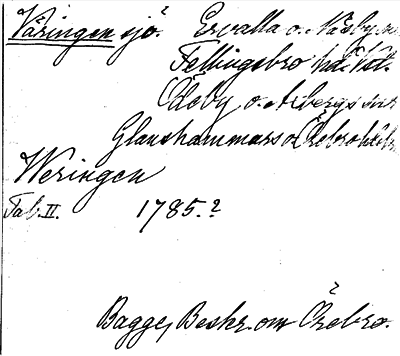 Väringen sjö. Ervalla o. Näsby
Fellingsbro hd. Vstl.
Ödeby o. Axbergs snr
Glanshammars o. Örebro hd
Weringen
Tab. II. 1785.?
Bagge, Beskr. om Örebro.